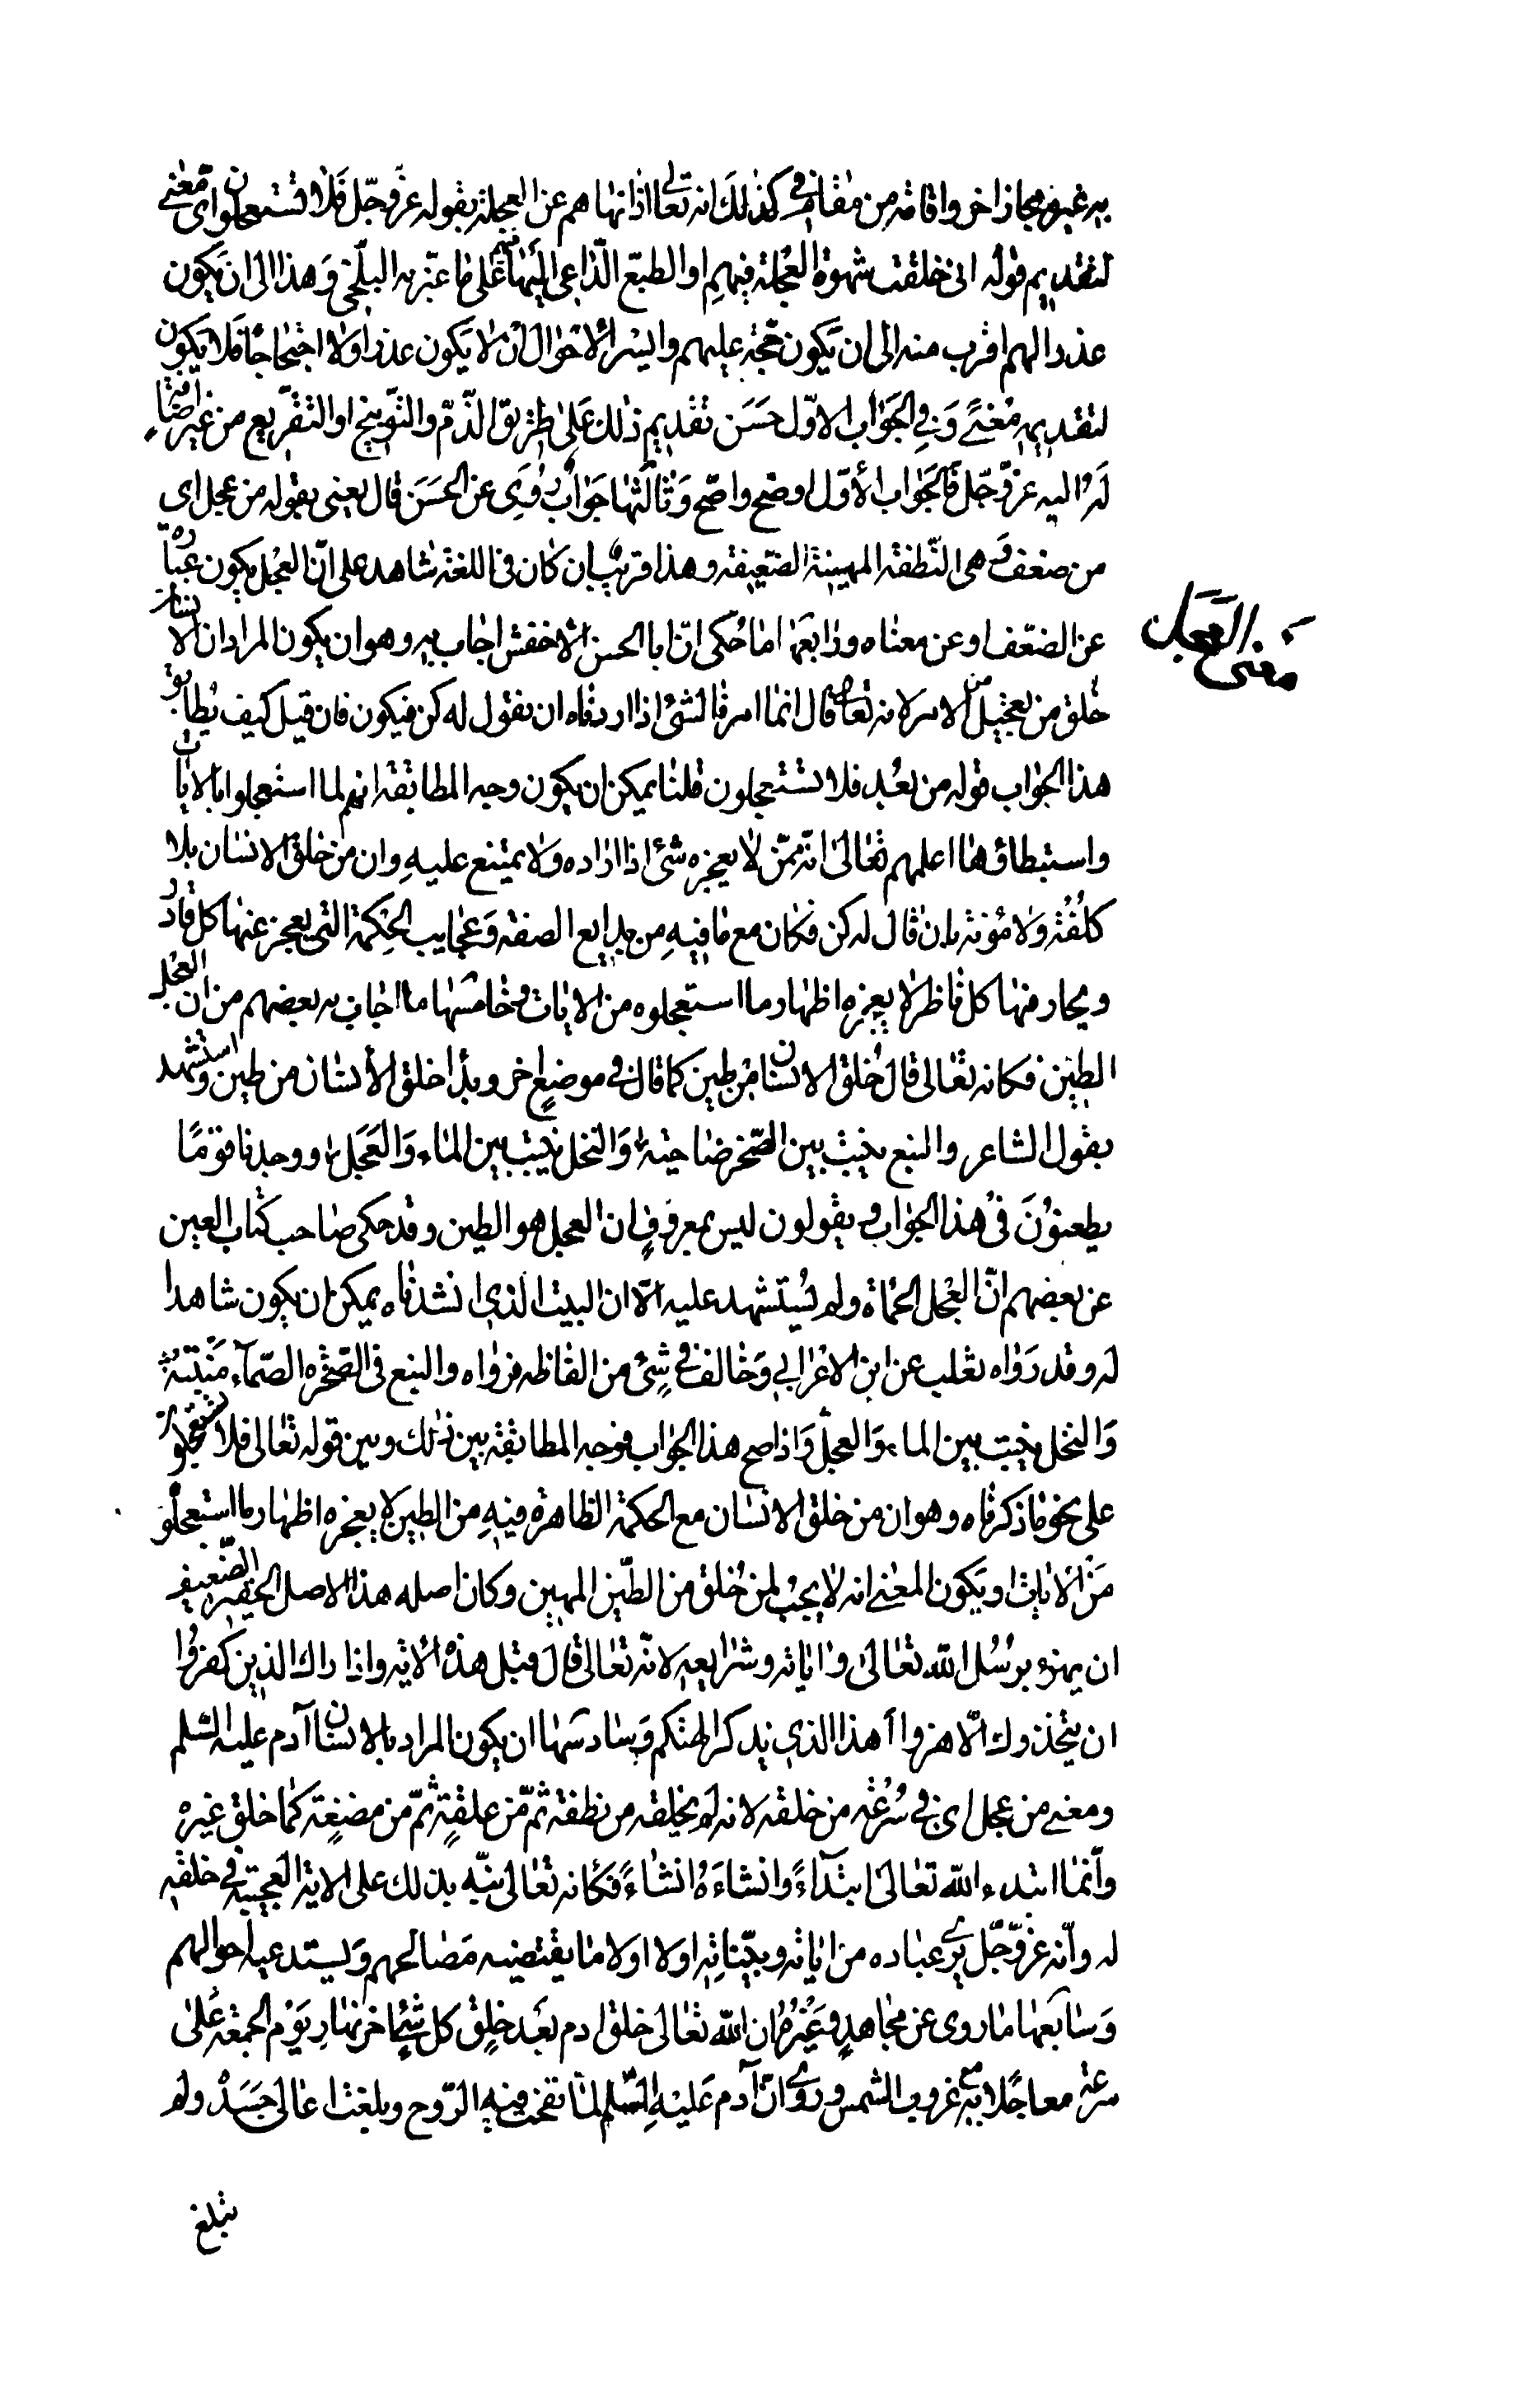 به غيره مجازا خر واقامه من مقامه وفي كذلك انه تعالى اذا نهاهم عن العجلة بقوله عزّ وجلّ فلا تستعجلون اى معنى
لتقديم قوله انى خلقت شهوة العجلة فيهم او الطبع الداعى اليها على ما عبّر به البلخى وهذا الى ان يكون
عذرا لهم اقرب منه الى ان يكون حجّة عليهم وايسر الاحوال ان لا يكون عذرا ولا احتجاجًا فلا يكون
لتقديمه معنى وفي الجواب الاوّل حسن تقديم ذلك على طريق الذمّ والتوبيخ او التقريع من غير اضافة
له اليه عزّ وجلّ فالجواب الأوّل اوضح واصحّ وثالثها جواب روى عن الحسن قال يعنى بقوله من عجل اى
من ضعف وهى النّطفة المهينة الضّعيفة وهذا قريب ان كان فى اللغة شاهد على انّ العجل يكون عبارة
عن الضعف او عن معناه ورابعها ما حُكى انّ ابا الحسن الاخفش اجاب به وهو ان يكون المراد ان الانسان
خُلق من تعجيل من الامر لانه تعالى قال انما امرنا لشئ اذا اردناه ان نقول له كن فيكون فان قيل كيف يُطابق
هذا الجواب قوله من بعد فلا تستعجلون قلنا يمكن ان يكون وجه المطابقة انهم لما استعجلوا بالايات
واستبطاؤها اعلمهم تعالى انّه ممّن لا يعجزه شئ اذا اراده ولا يمتنع عليه وان من خلق الانسان بلا
كلفة ولا مُؤنة بان قال له كن فكان مع ما فيه من بدايع الصنعة وعجايب الحكمة التى يعجز عنها كل قادر
ويحار فيها كل ناظر لا يعجزه اظهار ما استعجلوه من الايات وخامسها ما اجاب به بعضهم من ان العجل
الطين فكانه تعالى قال خُلق الانسان من طين كما قال في موضع اخر وبدا خلق الأنسان من طين واستشهد
بقول الشاعر والنبع ينبت بين الصّخر ضاحية والنخل ينبت بين الماء والعَجَل ووجدنا قومًا
يطعنون فى هذا الجواب ويقولون ليس بمعروف ان العجل هو الطين وقد حكى صاحب كتاب العين
عن بعضهم انّ العجل الحمأة ولم يُستشهد عليه الّا ان البيت الذى انشدناه يمكن ان يكون شاهدا
له وقد رواه ثعلب عن ابن الاعرابي وخالف في شئ من الفاظه فرواه والنبع فى الصّخرة الصّمآء منبته
والنخل ينبت بين الماء والعجل واذا صح هذا الجواب فوجه المطابقة بين ذلك وبين قوله تعالى فلا تستعجلون
على نحو ما ذكرناه وهو ان من خلق الانسان مع الحكمة الظاهرة فيه من الطين لا يعجزه اظهار ما استعجلوه
من الايات او يكون المعنى انه لا يجب لمن خُلق من الطّين المهين وكان اصله هذا الاصل الحقير الضّعيف
ان يهزء برُسُل الله تعالى واياته وشرايعه لانّه تعالى قال قبل هذه الاية واذا راك الذين كفروا
ان يتخذونك الّا هزوا أهذا الذى يذكر الهتكم وسادسها ان يكون المراد بالانسان آدم عليه السّلم
ومعنى من عجل اى في سُرعة من خلقه لانه لم يخلقه من نطفة ثمّ من علقة ثمّ من مضغة كما خلق غيره
وانّما ابتدء الله تعالى ابتدآءً وانشاءه انشاءً فكانه تعالى نبّه بذلك على الاية العجيبة في خلقه
له وانّه عزّ وجلّ يرى عباده من اياته وبيّناته اولا اولا ما يقتضيه مصالحهم ويستدعيه احوالهم
وسابعها ما روى عن مجاهد وغيره ان الله تعالى خلق ادم بعد خلق كل شئ اخر نهار يوم الجمعة على
سرعة معاجلا به غروب الشمس وروى انّ آدم عليه السّلم لمّا نفخت فيه الرّوح وبلغت اعالى جسده ولم
تبلغ
معنى العجل